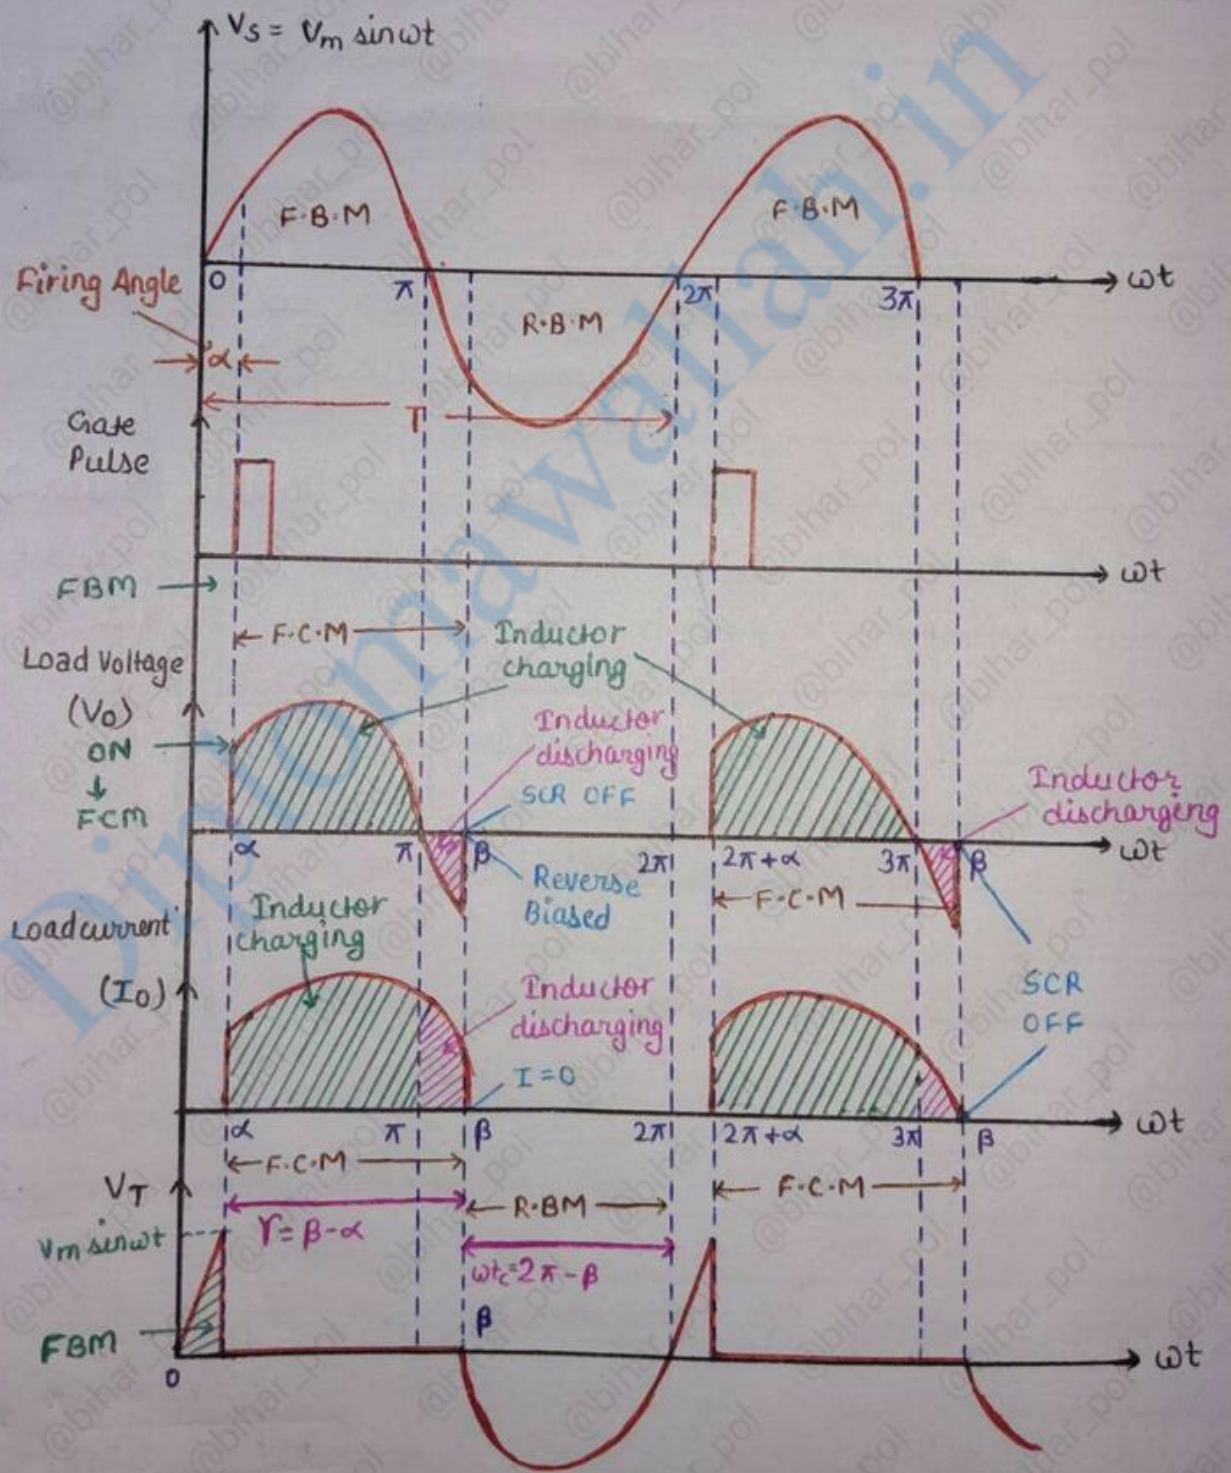 Vs = Vm sinωt
F·B·M
F·B·M
Firing Angle
0
π
2π
3π
ωt
R·B·M
α
T
Gate
Pulse
ωt
FBM
F·C·M
Inductor
charging
Load Voltage
(Vo)
ON
↓
FCM
Inductor
discharging
SCR OFF
Inductor
discharging
α
π
β
2π
2π+α
3π
β
ωt
Reverse
Biased
F·C·M
Load current
(Io)
Inductor
charging
Inductor
discharging
I=0
SCR
OFF
α
π
β
2π
2π+α
3π
β
ωt
F·C·M
F·C·M
VT
R·BM
Vm sinωt
γ=β-α
ωtc=2π-β
β
FBM
0
ωt
Diplomawallah.in
@bihar_pol